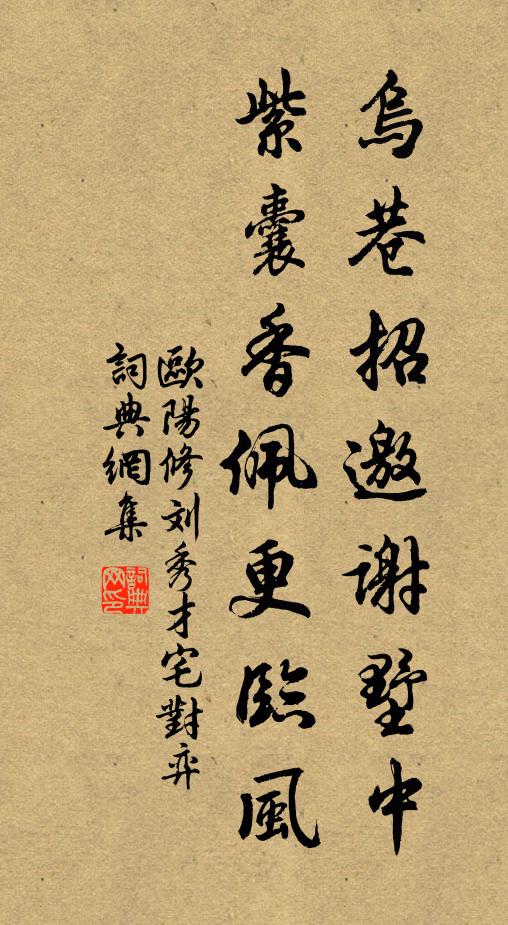 烏巷招邀謝墅中
紫囊香佩更臨風
歐陽修刘秀才宅對弈
詞典網集
詞典网印